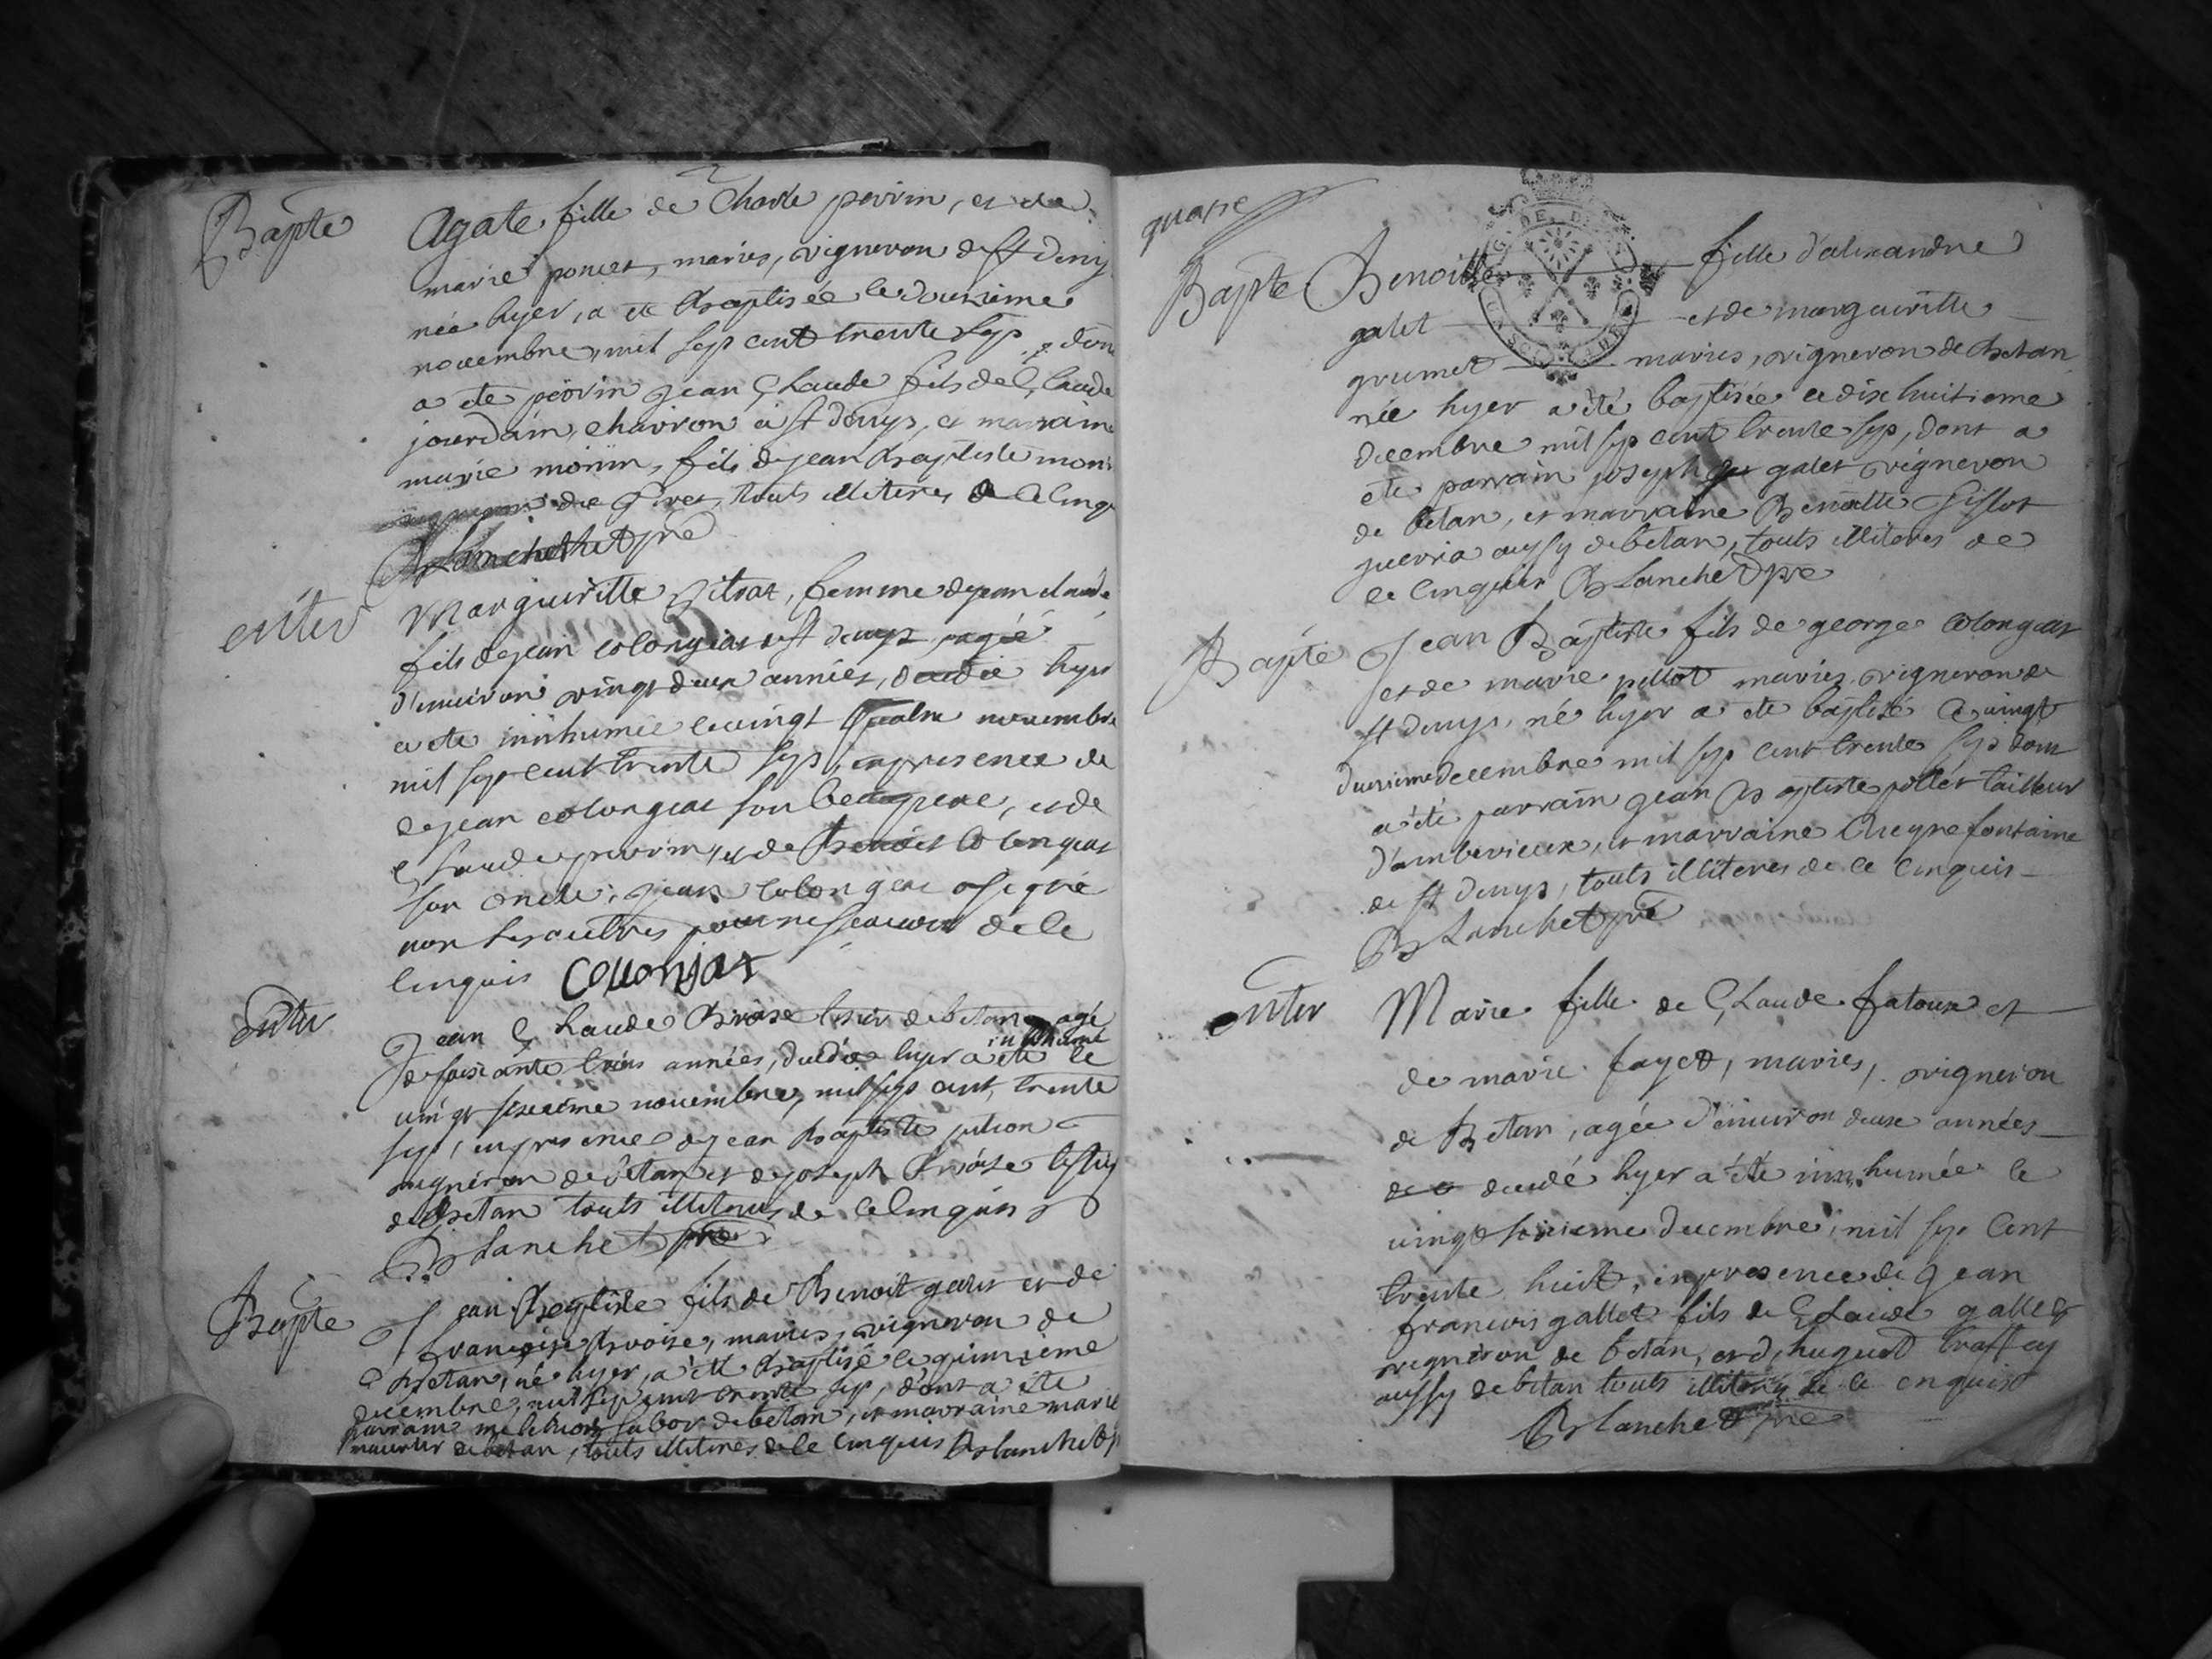 Bapte Agate fille de Charle perrin, et de
marie poncet, mariés, vigneron de st denys
née hyer, a ete baptisée le douzieme
novembre, mil sep cent trente sep, dont
a ete parrin jean Claude fils de Claude
jourdain, charron a st denys, et marraine
marie monin, fils de jean baptiste monin
de touts illiteres de ce enquis
Blanchet pre
enter Marguiritte femme de jean claude
fils de jean colongeat de st denys, agée
d'enuiron vingt deux années, decedée hyer
a ete innhumée le vingt quatre novembre
mil sep cent trente sep, en presence de
de jean colongeat son beaupere, et de
Claude perrin, et de Benoit Colongeat
son oncle, jean colongeat a signé
non les autres pour ne scauoir de ce
enquis Collonjat
enter Jean Claude Broise de betan agé
de soixante trois années, decedé hyer a ete inhumé le
vingt sixieme novembre, mil sep cent trente
sep, en presence de jean baptiste
vigneron de betan et de joseph Broise
de Betan touts illiteres de ce enquis
Blanchet pre
Bapte Jean Baptiste fils de Benoit galet et de
françoise Broise, mariés, vigneron de
Betan, né hyer, a été baptisé le quinzieme
decembre, mil sep cent trente sep, dont a ete
parrain de betan, et marraine marie
de betan, touts illiteres de ce enquis Blanchet p
quatre
Bapte Benoitte fille d'alexandre
galet et de marguiritte
grumet mariés, vigneron de Betan
née hyer a été baptisée le dix huitieme
decembre mil sep cent trente sep, dont a
ete parrain joseph galet vigneron
de betan, et marraine Benoitte
aussy de betan, touts illiteres de
ce enquis Blanchet pre
Bapte Jean Baptiste fils de george Colongeat
et de marie pillot mariés, vigneron de
st denys, né hyer a ete baptisé le vingt
deuxieme decembre mil sep cent trente sep dont
a été parrain jean Baptiste pillet tailleur
d'amberieux, et marraine fontaine
de st denys, touts illiteres de ce enquis
Blanchet pre
enter Marie fille de Claude fatoux et
de marie fayet, mariés, vigneron
de Betan, agée d'enuiron deux années
decedé hyer a été innhumée le
vingt sixieme decembre, mil sep cent
trente huit, en presence de jean
francois gallet fils de Claude gallet
vigneron de betan, et d'hugues
aussy de betan touts illiteres de ce enquis
Blanchet pre